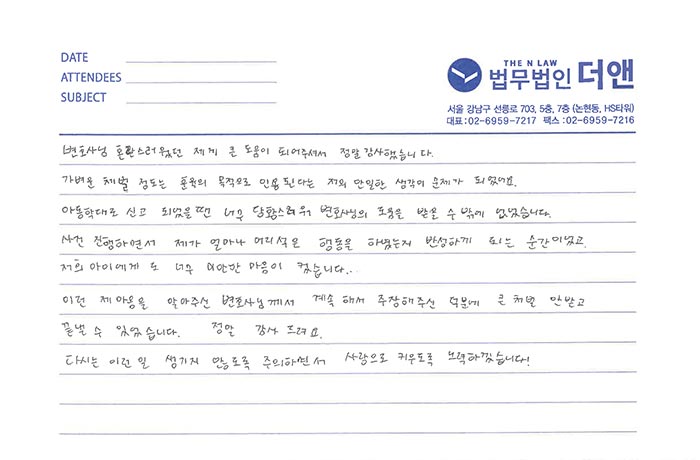 DATE
ATTENDEES
SUBJECT
THE N LAW
법무법인 더앤
서울 강남구 선릉로 703, 5층, 7층 (논현동, HS타워)
대표:02-6959-7217 팩스:02-6959-7216
변호사님 혼란스러웠던 제게 큰 도움이 되어주셔서 정말 감사했습니다.
가벼운 체벌 정도는 훈육의 목적으로 인용된다는 저의 안일한 생각이 문제가 되었네요.
아동학대로 신고 되었을땐 너무 당황스러워 변호사님의 도움을 받을 수 밖에 없었습니다.
사건 진행하면서 제가 얼마나 어리석은 행동을 하였는지 반성하게 되는 순간이었고,
저희 아이에게 도 너무 미안한 마음이 컸습니다...
이런 제마음을 알아주신 변호사님께서 계속 해서 주장해주신 덕분에 큰 처벌 안받고
끝낼 수 있었습니다. 정말 감사 드려요.
다시는 이런 일 생기지 않도록 주의하면서 사랑으로 키우도록 노력하겠습니다!